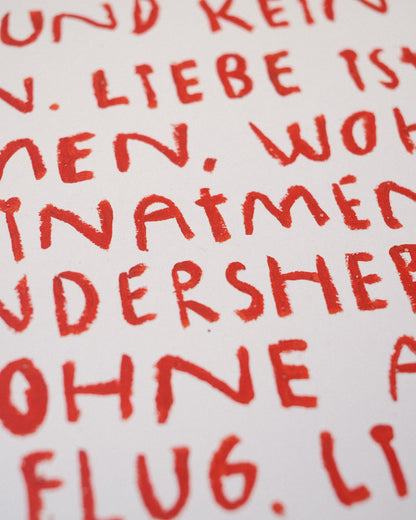 UND KEIN
N. LIEBE IST
MEN. WOH
EINATMEN
NDERSHER
OHNE A
FLUG. LI